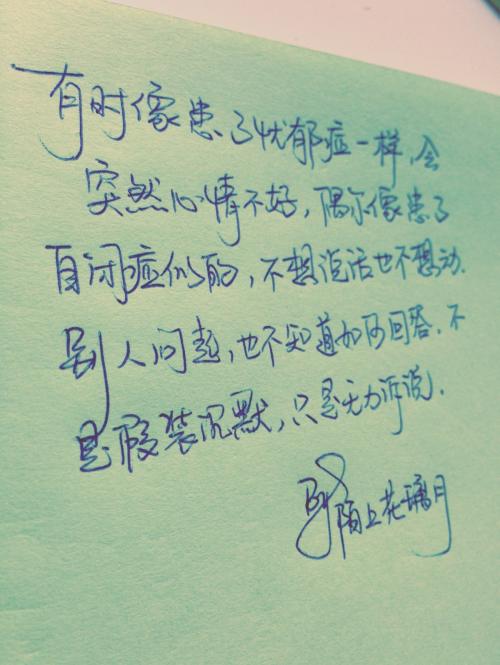 有时像患了忧郁症一样,会
突然心情不好,偶尔像患了
自闭症似的,不想说话也不想动.
别人问起,也不知道如何回答.不
是假装沉默,只是无力诉说.
By陌上花璃月